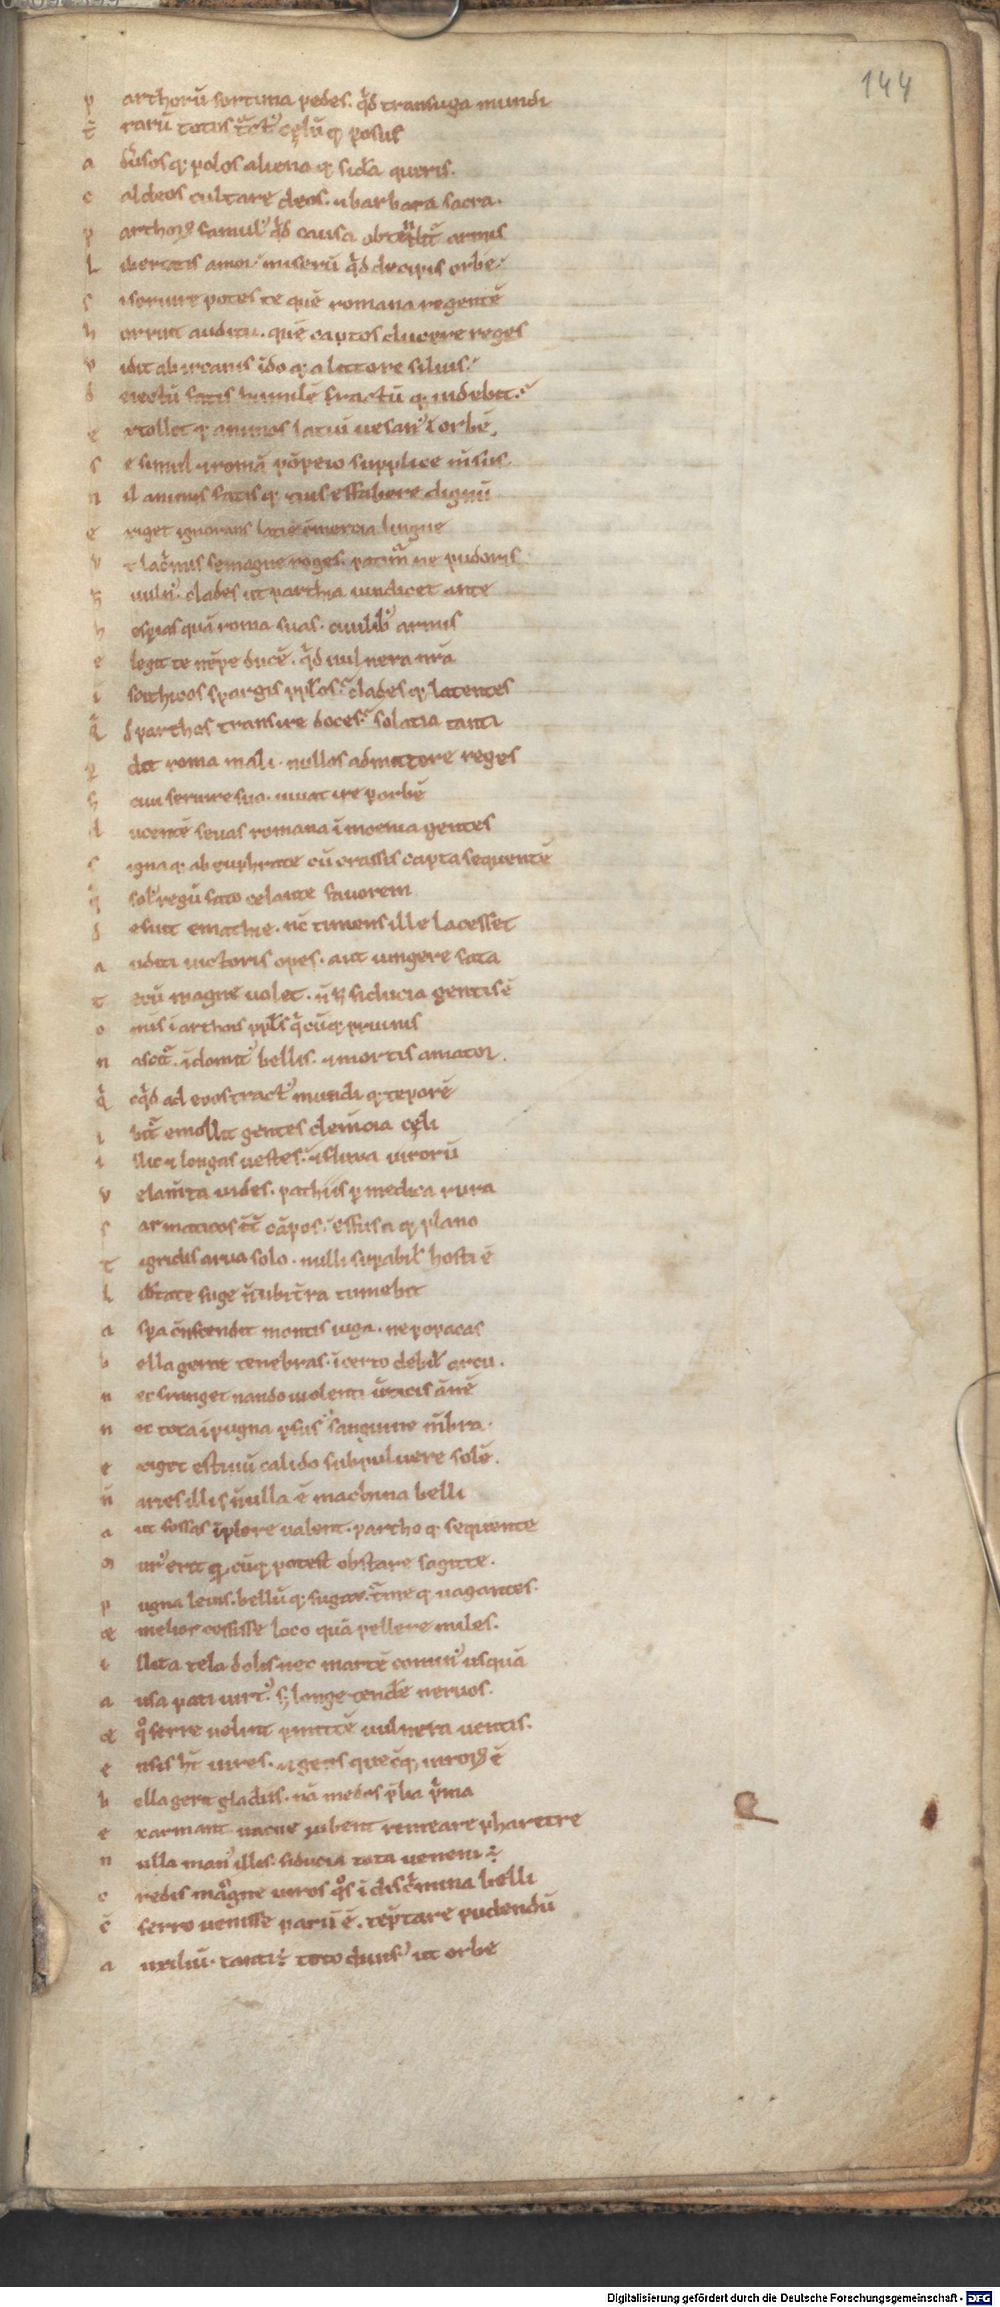 144
p arthorū fortuna pedes. qd transfuga mundi
t rarū totus tctꝰ cęlūq posus
a dūsosq polos alienaq sidera queris.
c aldeos cultare deos. ⁊ barbara sacra.
p arthoꝝ famulꝰ. qd causa obtenditͬ armis
l ibertatis amor. miserū qd decipis orbē.
s i servire potes te quē romana regentē
h orruit auditu. quē captos ducere reges
v idit ab ircanis īdo q a littore silvis.
d eiectū fatis humilē fractū q videbit.
e xtollet q animos latiū vesanꝰ ī orbē.
s e simul ⁊ romā pōpeio supplice mēsus.
n il animis fatis q tuis effabere dignū
e xiget ignorans latiē cōmercia lingue
v t lacͥmis se magne roges. patimͬ ne pudoris
h uulnꝰ. clades ut parthia vindicet ante
h espias quā roma suas. civilibꝰ armis
e legit te nēpe ducē. qd vulnera nra
i scithicos spargis pplos. clades q latentes
q d parthos transire doces. solatia tanti
p dit roma mali. nullos admittere reges
s civi servire suo. iuvat ire p orbē
d ucentē sevas romana ī moenia gentes
s igna q ab euphrate cū crassis capta sequentē
q solꝰ regū fato celante favorem
d efuit emathie. nc timens ille lacesset
a uditi victoris opes. aut iungere fata
t ecū magne volet. n h fiducia gentis ē
o mis ī arthois pplis qcūq pruinis
n ascitͬ. īdomitꝰ bellis. ⁊ mortis amator.
q cqd ad eoos tractꝰ mundi q teporē
i bitͬ emollit gentes clemcia cęli
i llic ⁊ longas vestes. ⁊ fluxa virorū
v elamta vides. pathiis p medica rura
s armaticos int cāpos. effusa q plano
t igridis arva solo. nulli supabilꝰ hosti ē
l ibtate fuge. n ubi tra tumebit
a spa cōscendit montis iuga. ne p opacas
b ella gerit tenebras. īcerto debilꝰ arcu.
n ec franget nando violenti vticis ānē
n ec tota ī pugna psusꝰ sanguine mēbra.
e xiget estivū calido sub pulvere solē.
n aries illis nulla ē machina belli
a ut fossas īplere valent. partho q sequente
m urꝰ erit q cūq potest obstare sagitte.
p ugna levis. bellūq fugax. tͬme q vagantes.
& melior cessisse loco quā pellere miles.
i llita tela dolis nec martē cominꝰ usquā
a usa pati virtꝰ. s longe tende nervos.
& qo ferre velint pmittē vulnera ventis.
e nsis ht vires. ⁊ gens que cq viroꝝ ē
b ella gerit gladiis. nā medos plia pma
e xarmant vacue iubent remeare pharetre
n ulla manꝰ illis. fiducia tota veneni ē
c redis māgne viros qos ī discͥmina belli
c ferro venisse parū ē. teptare pudendū
a uxiliū. tanti ē toto divisꝰ ut orbe
Digitalisierung gefördert durch die Deutsche Forschungsgemeinschaft - DFG